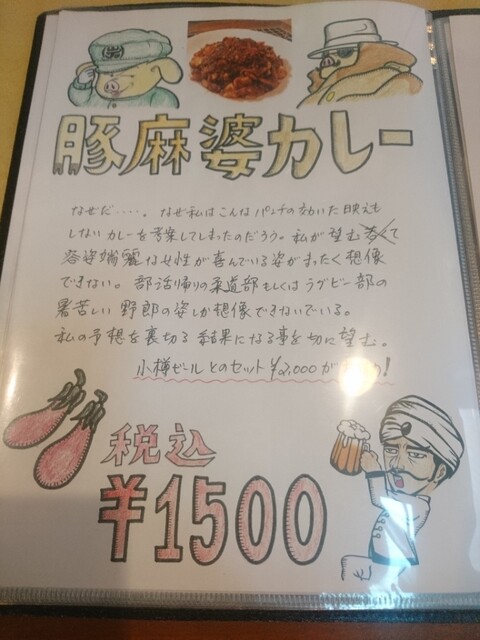 豚麻婆カレー
なぜだ‥‥。なぜ私はこんなパンチの効いた映えも
しないカレーを考案してしまったのだろう。私が望む若くて
容姿端麗な女性が喜んでいる姿がまったく想像
できない。部活帰りの柔道部もしくはラグビー部の
暑苦しい野郎の姿しか想像できないでいる。
私の予想を裏切る結果になる事を切に望む。
小樽ビールとのセット¥2,000が!
税込
¥1500